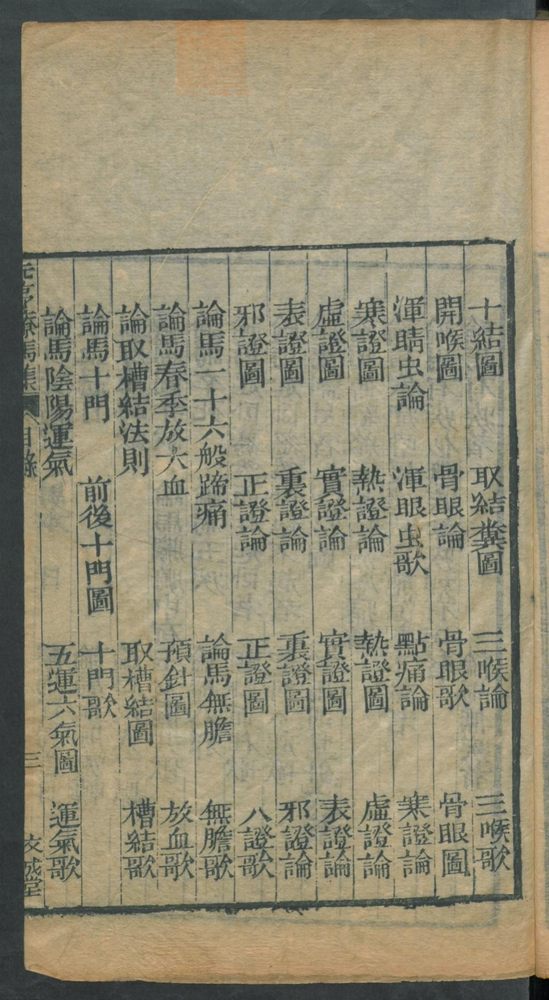 十結圖 取結糞圖 三喉論 三喉歌
開喉圖 骨眼論 骨眼歌 骨眼圖
渾睛虫論 渾眼虫歌 點痛論 寒證論
寒證圖 熱證論 熱證圖 虛證論
虛證圖 實證論 實證圖 表證論
表證圖 裏證論 裏證圖 邪證論
邪證圖 正證論 正證圖 八證歌
論馬一十六般蹄痛 論馬無膽 無膽歌
論馬春季放大血 預針圖 放血歌
論取槽結法則 取槽結圖 槽結歌
論馬十門 前後十門圖 十門歌
論馬陰陽運氣 五運六氣圖 運氣歌
元亨療馬集 目錄 三 文成堂